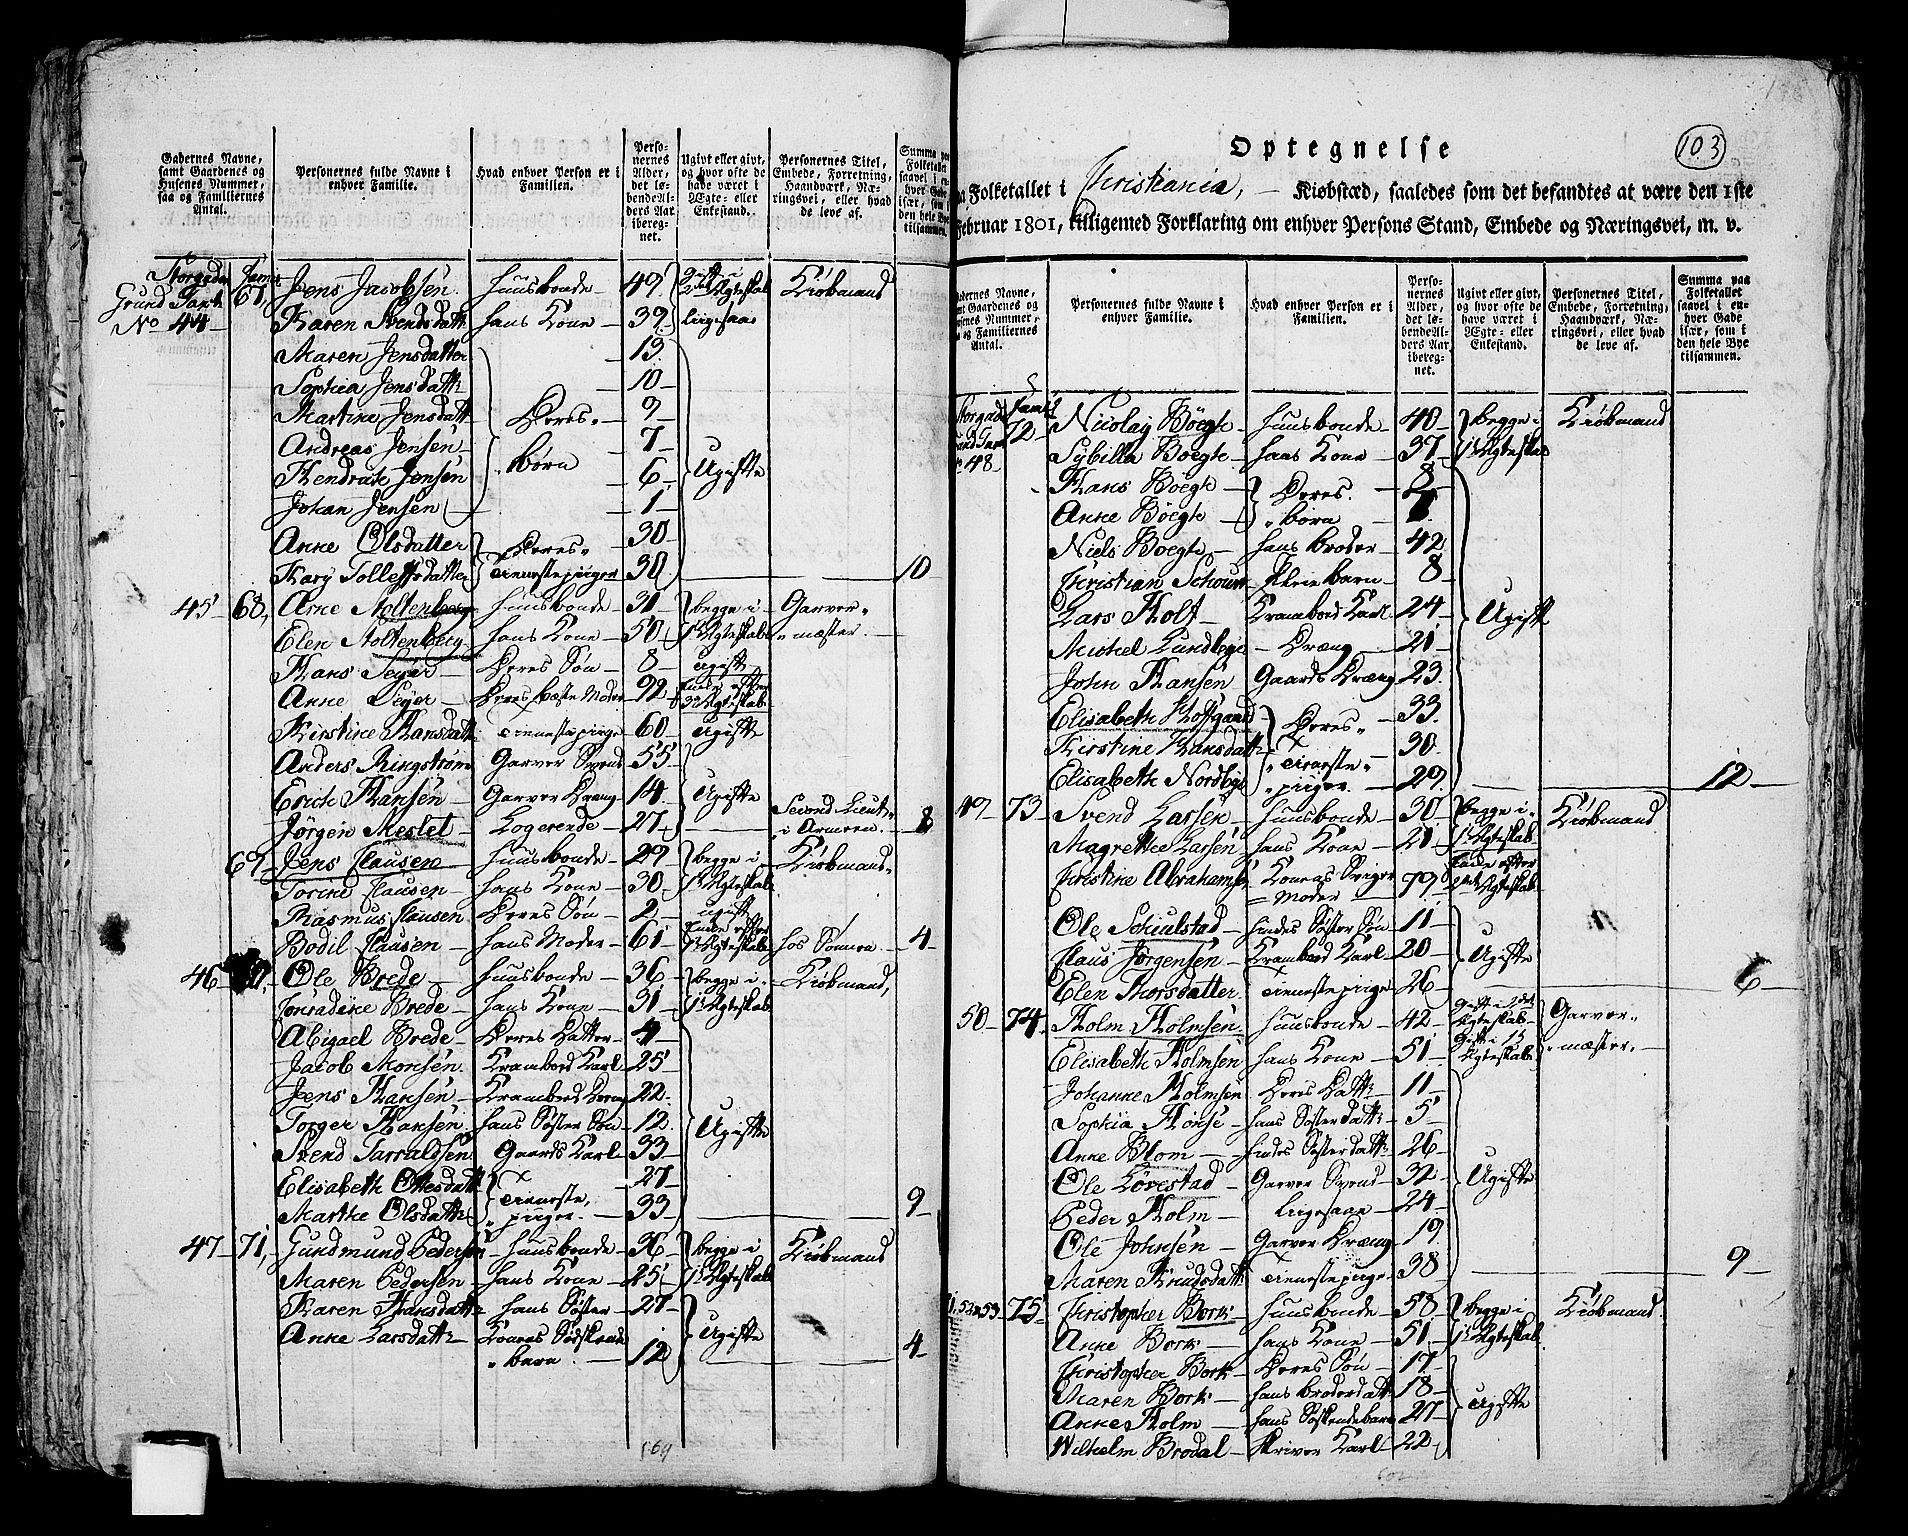 Gadernes Navne, samt Gaardenes og Husenes Nummer, saa og Familiernes Antal.
Personernes fulde Navne i enhver Familie.
Hvad enhver Person er i Familien.
Personernes Alder, det løbende Alders Aar iberegnet.
Ugivt eller givt, og hvor ofte de have været i Ægte- eller Enkestand.
Personernes Titel, Embede, Forretning, Haandværk, Næringsvei, eller hvad de leve af.
Summa paa Folketallet saavel i enhver Gade især, som i den hele Bye tilsammen.
Storgaden Famil
Grund Taxt No 44 67, Jens Jacobsen Huusbonde 49 Kiøbmand
Karen Svendsdatt hans Kone 39 ligesaa
Maren Jensdatter 13
Sophia Jensdattr 10
Martine Jensdatt Deres 9
Andreas Jensen Børn 7 Ugifte
Hendrik Jensen 6
Johan Jensen 1
Anne Olsdatter Deres 30
Kary Tollefsdatter tienestepiger 30 10
45 68, Arne Holtenberg Huusbonde 31 begge i Garver
Elen Holtenberg hans Kone 50 1ste Ægteskab mæster
Hans Sejer Deres Søn 8 ugift
Anne Sejer Deres Bæste Moder 92 Enke efter 3de Ægteskab
Kirstine Hansdatt tienestepige 60 ugifte
Anders Ringstrøm Garver Svend 55
Erich Hansen Garver Dreng 14 Ugifte
Jørgen Meslet Logerende 27 Second Lieut i Armeen 8
69 Jens Clausen Huusbonde 29 begge i Kiøbmand
Torine Clausen hans Kone 30 1ste Ægteskab
Rasmus Clausen Deres Søn 2 ugift
Bodil Clausen hans Moder 61 Enke efter 1ste Ægteskab hos Sønnen 4
46 70, Ole Brede Huusbonde 36 begge i Kiøbmand
Conradine Brede hans Kone 31 1ste Ægteskab
Abigael Brede Deres Datter 4
Jacob Monsen Krambod Karl 25
Jens Hansen Krambod Dreng 22
Torger Hansen hans Søster Søn 12 Ugifte
Svend Tarraldsen Gaards Karl 33
Elisabeth Ottesdatt tieneste 27
Marthe Olsdatt piiger 33 9
47 71, Gundmund Pedersen Huusbonde 36 begge i Kiøbmand
Maren Pedersen hans Kone 25 1ste Ægteskab
Karen Hansdatt hans Søster 27 Ugifte
Anne Larsdattr Kones Sødskende barn 12 4
169
103
Optegnelse
paa Folketallet i Christiania, Kiøbstæd, saaledes som det befandtes at være den 1ste
Februar 1801, tilligemed Forklaring om enhver Persons Stand, Embede og Næringsvei, m. v.
Gadernes Navne, samt Gaardenes og Husenes Nummer, saa og Familiernes Antal.
Personernes fulde Navne i enhver Familie.
Hvad enhver Person er i Familien.
Personernes Alder, det løbende Alders Aar iberegnet.
Ugivt eller givt, og hvor ofte de have været i Ægte- eller Enkestand.
Personernes Titel, Embede, Forretning, Haandværk, Næringsvei, eller hvad de leve af.
Summa paa Folketallet saavel i enhver Gade især, som i den hele Bye tilsammen.
Storgade Famil
48 72 Nicolay Bøegh Huusbonde 40 begge i Kiøbmand
Sybilla Bøegh hans Kone 37 1ste Ægteskab
Hans Bøegh Deres 8
Anne Bøegh børn
Niels Bøegh hans Broder 42
Christian Schour Pleiebarn 8
Lars Holf Krambod Karl 24 Ugifte
Michel Lundbye Dræng 21
John Hansen Gaards Dræng 23
Elisabeth Hoffgaard Deres 33
Kirstine Hansdatt tieneste 30
Elisabeth Nordbye piger 29 12
49 73 Svend Larsen Huusbonde 30 begge i Kiøbmand
Magrethe Larsen hans Kone 21 1ste Ægteskab
Christine Abrahamsen Konens Sviger Moder 79 Enke efter 2det Ægteskab
Ole Schiulstad hindes Søster Søn 11
Claus Jørgensen Krambod Karl 20 Ugifte
Elen Thorsdatter tienestepige 26 6
50 74 Holm Holmsen Huusbonde 42 Gift i 2det Ægteskab Garver
Elisabeth Holmsen hans Kone 51 Gift i 1ste Ægteskab mæster
Johanne Holmsen Deres Dattr 11
Sophia Monse hans Søsterdattr 5
Anne Blom hindes Søsterdattr 26
Ole Lørestad Garver Svend 32 Ugifte
Peder Holm ligesaa 24
Ole Johnsen Garver Dræng 19
Maren Knudsdatt tienestepige 38 9
52 53 75 Christopher Bork Huusbonde 58 begge i Kiøbmand
Anne Bork hans Kone 51 1ste Ægteskab
Christopher Bork Deres Søn 17
Maren Bork hans Broderdatt 18 Ugifte
Anne Holm hans Søskendebarn 27
Wilhelm Brodal Skriver Karl 22